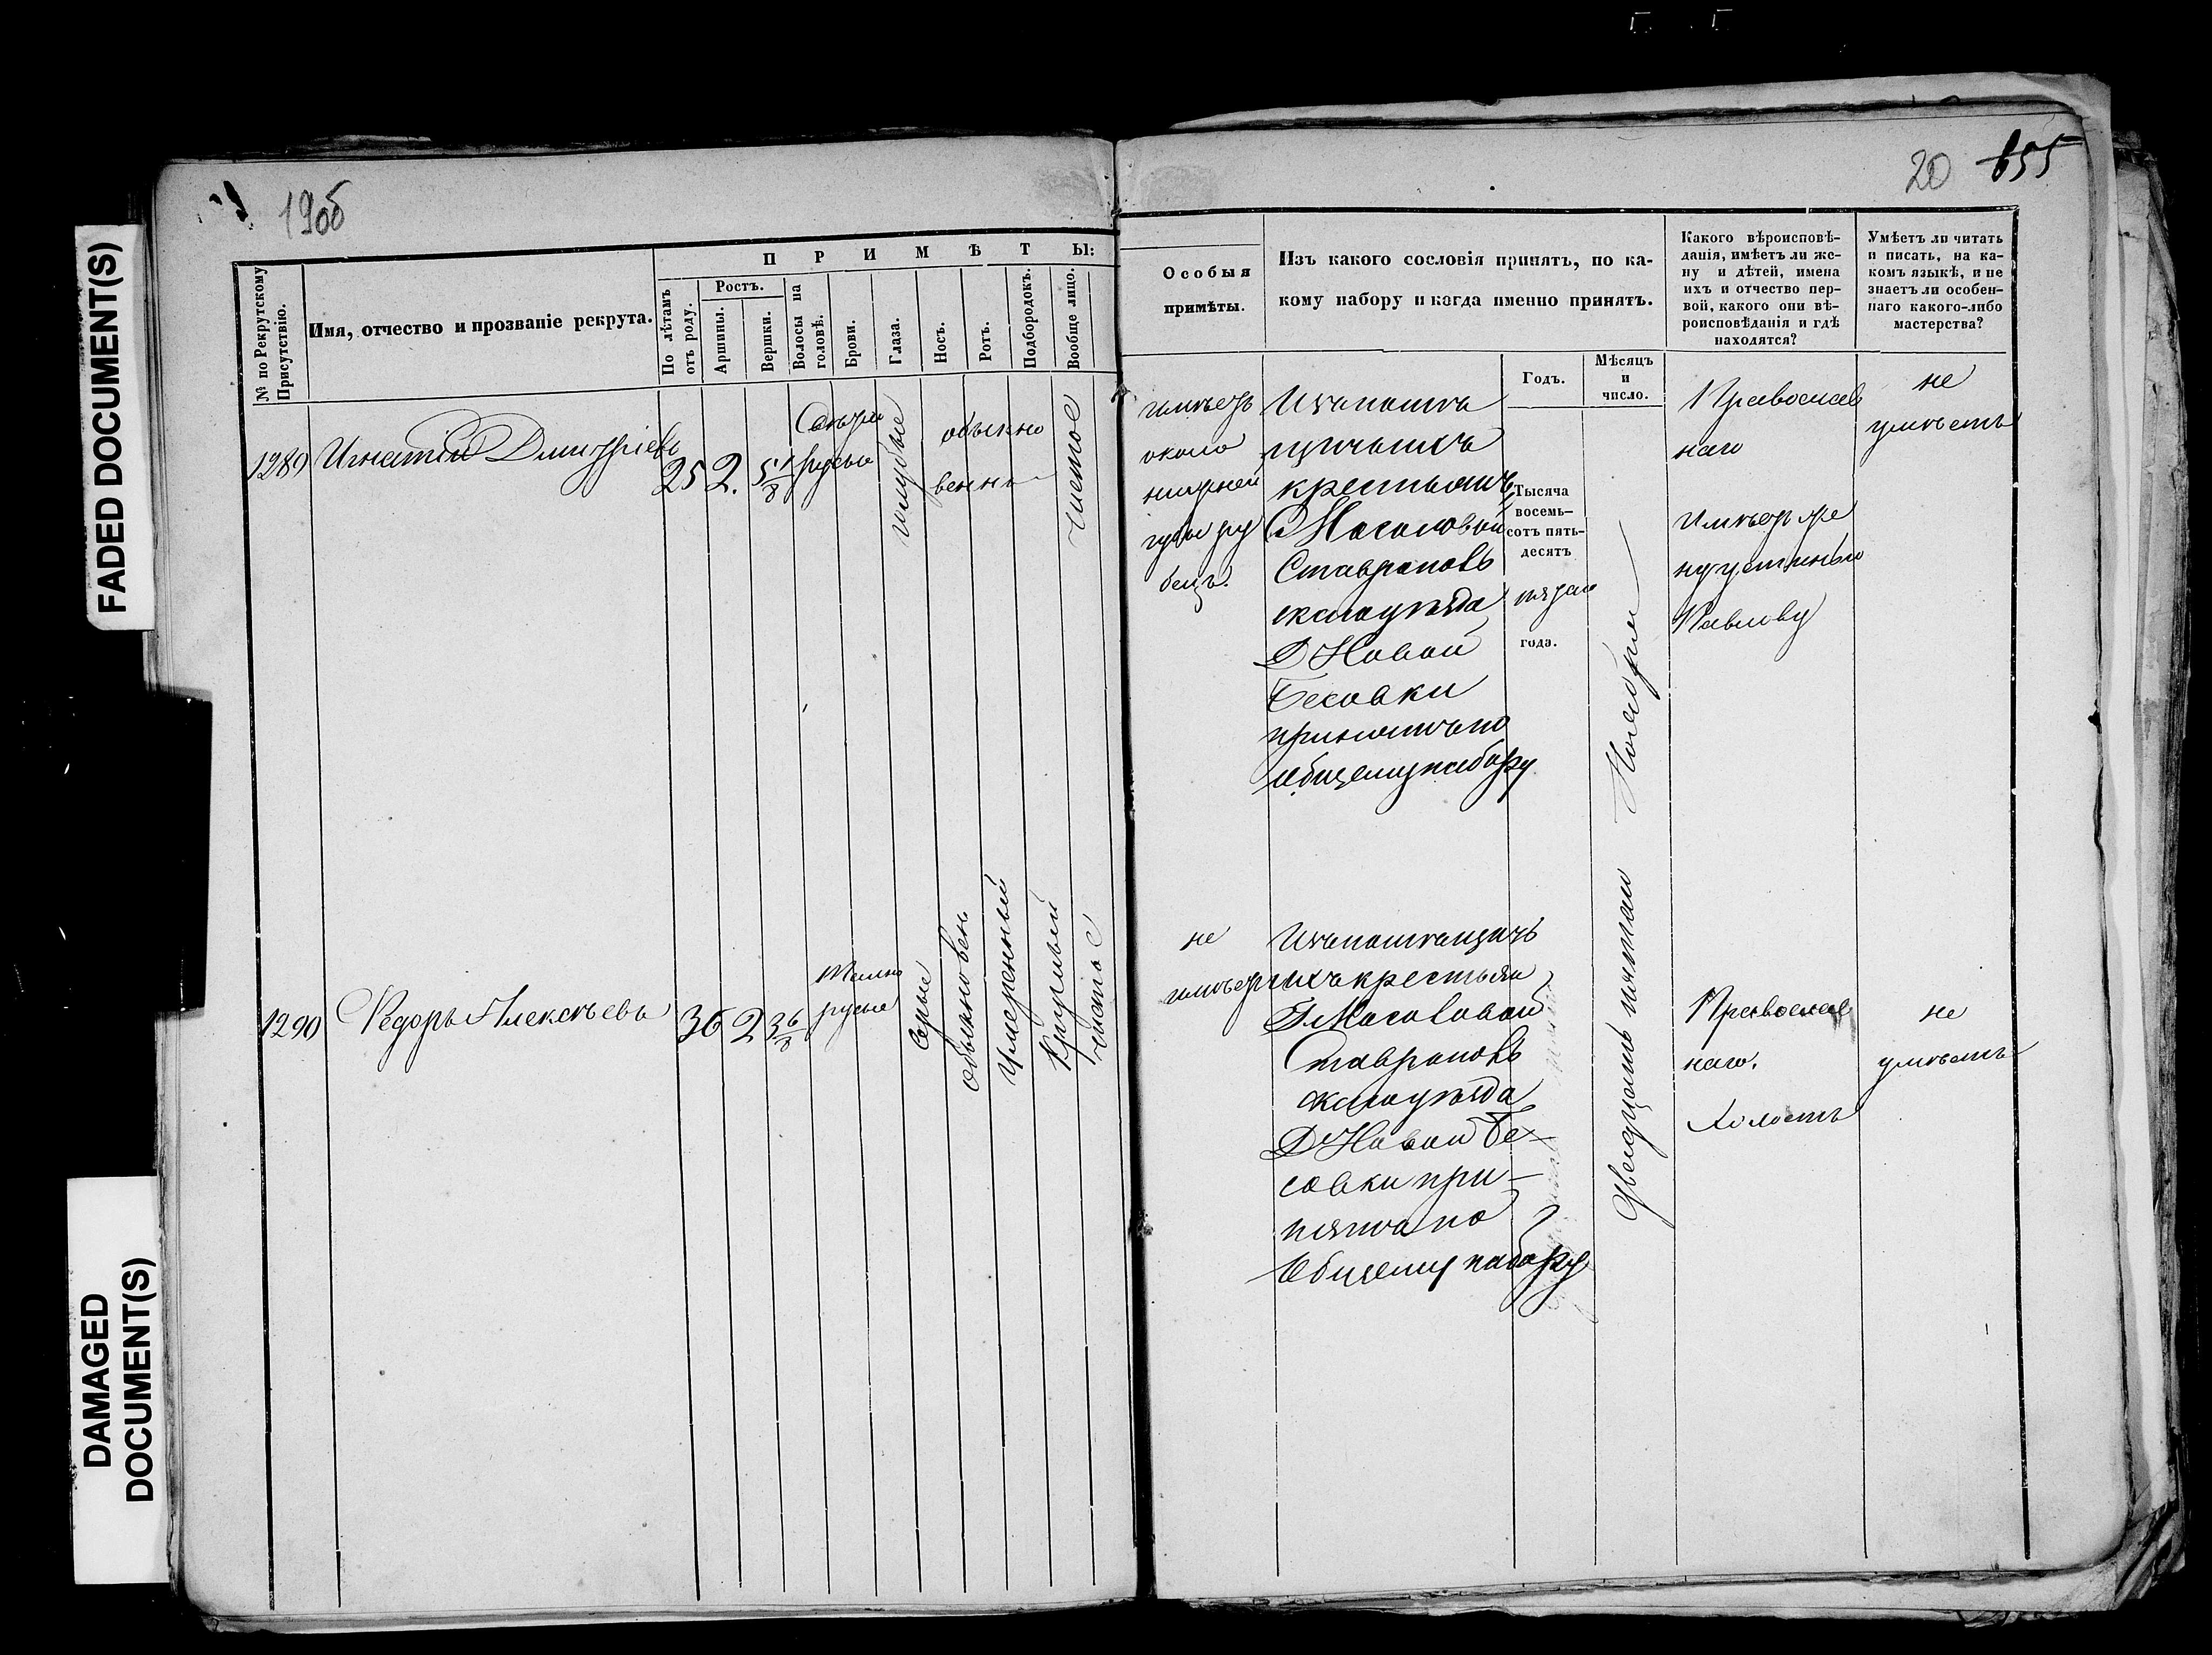 FADED DOCUMENT(S)
DAMAGED
DOCUMENT(S)
19об
20 655
№ по Рекрутскому
Присутствію.
Имя, отчество и прозваніе рекрута.
ПРИМѢТЫ:
По лѣтамъ
отъ роду.
Ростъ.
Аршины.
Вершки.
Волосы на
головѣ.
Брови.
Глаза.
Носъ.
Ротъ.
Подбородокъ.
Вообще лицо.
Особыя
примѣты.
Изъ какого сословія принятъ, по ка-
кому набору и когда именно принятъ.
Какого вѣроисповѣ-
данія, имѣетъ ли же-
ну и дѣтей, имена
ихъ и отчество пер-
вой, какого они вѣ-
роисповѣданія и гдѣ
находятся?
Умѣетъ ли читать
и писать, на ка-
комъ языкѣ, и не
знаетъ ли особен-
наго какого-либо
мастерства?
Годъ.
Мѣсяцъ
и
число.
1289 Игнатій Дмитріевъ
25 2. 5 1/8
Свѣтло
русые
голубые
обыкно
венны
чистое
имѣетъ
около
нижней
губы ру
бецъ.
Изъ помѣ
щичьихъ
крестьянъ
Г Мосоловой
Ставрополь
скаго уѣзда
Д Новой
Бесовки
принятъ по
общему набору
Тысяча
восемь-
сотъ пять-
десятъ
пятаго
года.
Двадцать пятаго Ноября
Православ
наго
Имѣетъ же
ну устинью
Павлову
не
умѣетъ
1290 Федоръ Алексѣевъ
36 2 3 6/8
темно
русые
Серые
обыкновен
умеренный
Круглый
чистое
не
имѣетъ
Изъ помѣщичь
ихъ крестьян
Г Мосоловой
Ставрополь
скаго уѣзда
Д Новой Бе-
совки при-
нятъ по
Общему набору
Православ
наго.
Холостъ
не
умѣетъ